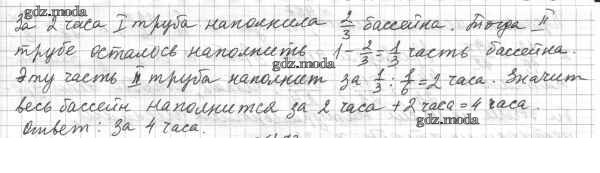 gdz.moda
За 2 часа I труба наполнила 2/3 бассейна. Тогда II
gdz.moda
трубе осталось наполнить 1 - 2/3 = 1/3 часть бассейна.
Эту часть II труба наполнит за 1/3 : 1/6 = 2 часа. Значит
весь бассейн наполнится за 2 часа + 2 часа = 4 часа.
gdz.moda
Ответ: за 4 часа.
gdz.moda